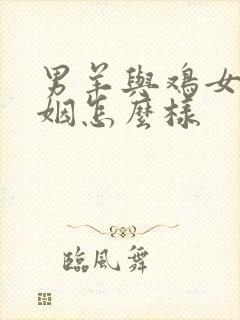 男羊與鴻女
姻怎麼樣
臨風舞